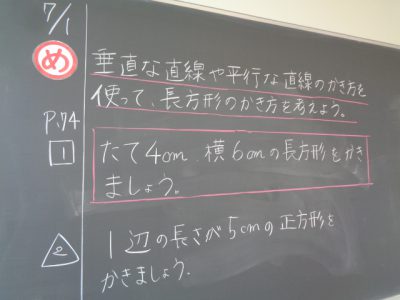 7/1
め
垂直な直線や平行な直線のかき方を
使って、長方形のかき方を考えよう。
P.74
1
たて4cm、横6cmの長方形をかき
ましょう。
2
1辺の長さが5cmの正方形を
かきましょう.